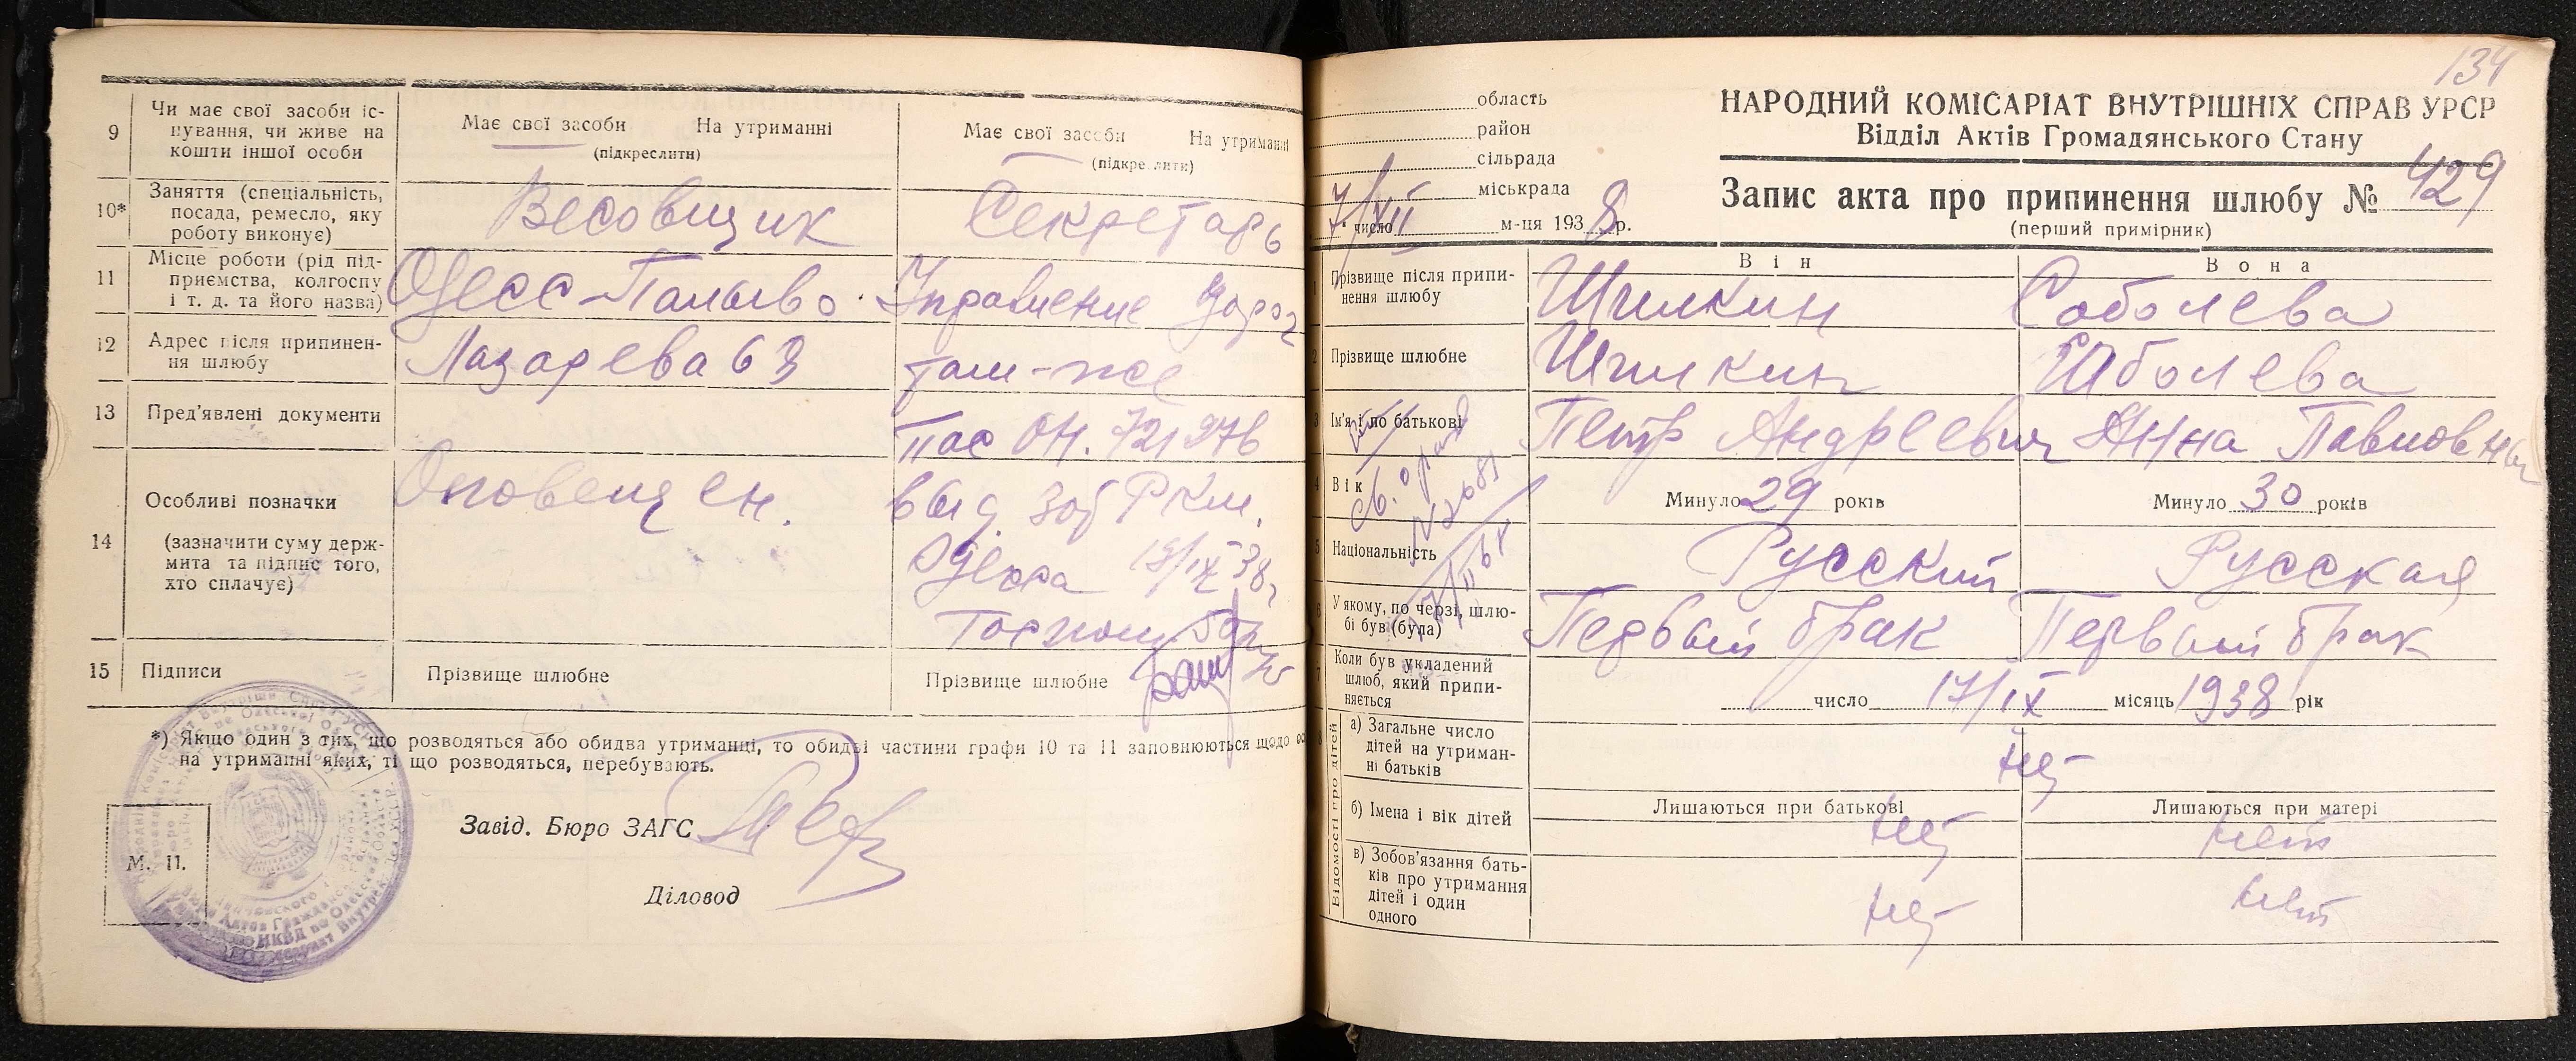 9
Чи має свої засоби іс-
нування, чи живе на
кошти іншої особи
Має свої засоби На утриманні
(підкреслити)
Має свої засоби На утриманні
(підкре лити)
10*
Заняття (спеціальність,
посада, ремесло, яку
роботу виконує)
Весовщик
Секретарь
11
Місце роботи (рід під-
приємства, колгоспу
і т. д. та його назва)
Управление дорог
12
Адрес після припинен-
ня шлюбу
Лазарева 63
там-же
13
Пред'явлені документи
Пас ОН. 721976
14
Особливі позначки
(зазначити суму держ-
мита та підпис того,
хто сплачує)
Оповещен.
выд. 3 об РКМ.
Одесса 15/IX 38,
15
Підписи
Прізвище шлюбне
Прізвище шлюбне
*) Якщо один з тих, що розводяться або обидва утриманці, то обидві частини графи 10 та 11 заповнюються щодо ос
на утриманні яких, ті що розводяться, перебувають.
М. П.
Завід. Бюро ЗАГС
Діловод
134
область
район
сільрада
міськрада
7/XII
число м-ця 1938 р.
НАРОДНИЙ КОМІСАРІАТ ВНУТРІШНІХ СПРАВ УРСР
Відділ Актів Громадянського Стану
Запис акта про припинення шлюбу № 429
(перший примірник)
Він
Вона
1
Прізвище після припи-
нення шлюбу
Шишкин
Соболева
2
Прізвище шлюбне
Шишкин
Соболева
3
Ім'я і по батькові
Петр Андреевич
Анна Павловна
4
Вік
Минуло 29 років
Минуло 30 років
5
Національність
Русский
Русская
6
У якому, по черзі, шлю-
бі був (була)
Первый брак
Первый брак
7
Коли був укладений
шлюб, який припи-
няється
число 17/IX місяць 1938 рік
8
Відомості про дітей
а) Загальне число
дітей на утриман-
ні батьків
нет
б) Імена і вік дітей
Лишаються при батькові
нет
Лишаються при матері
нет
в) Зобов'язання бать-
ків про утримання
дітей і один
одного
нет
нет